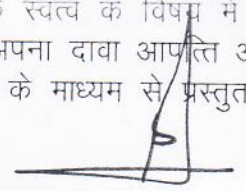 स्वत्व के विषय में
अपना दावा आपत्ति
के माध्यम से प्रस्तुत